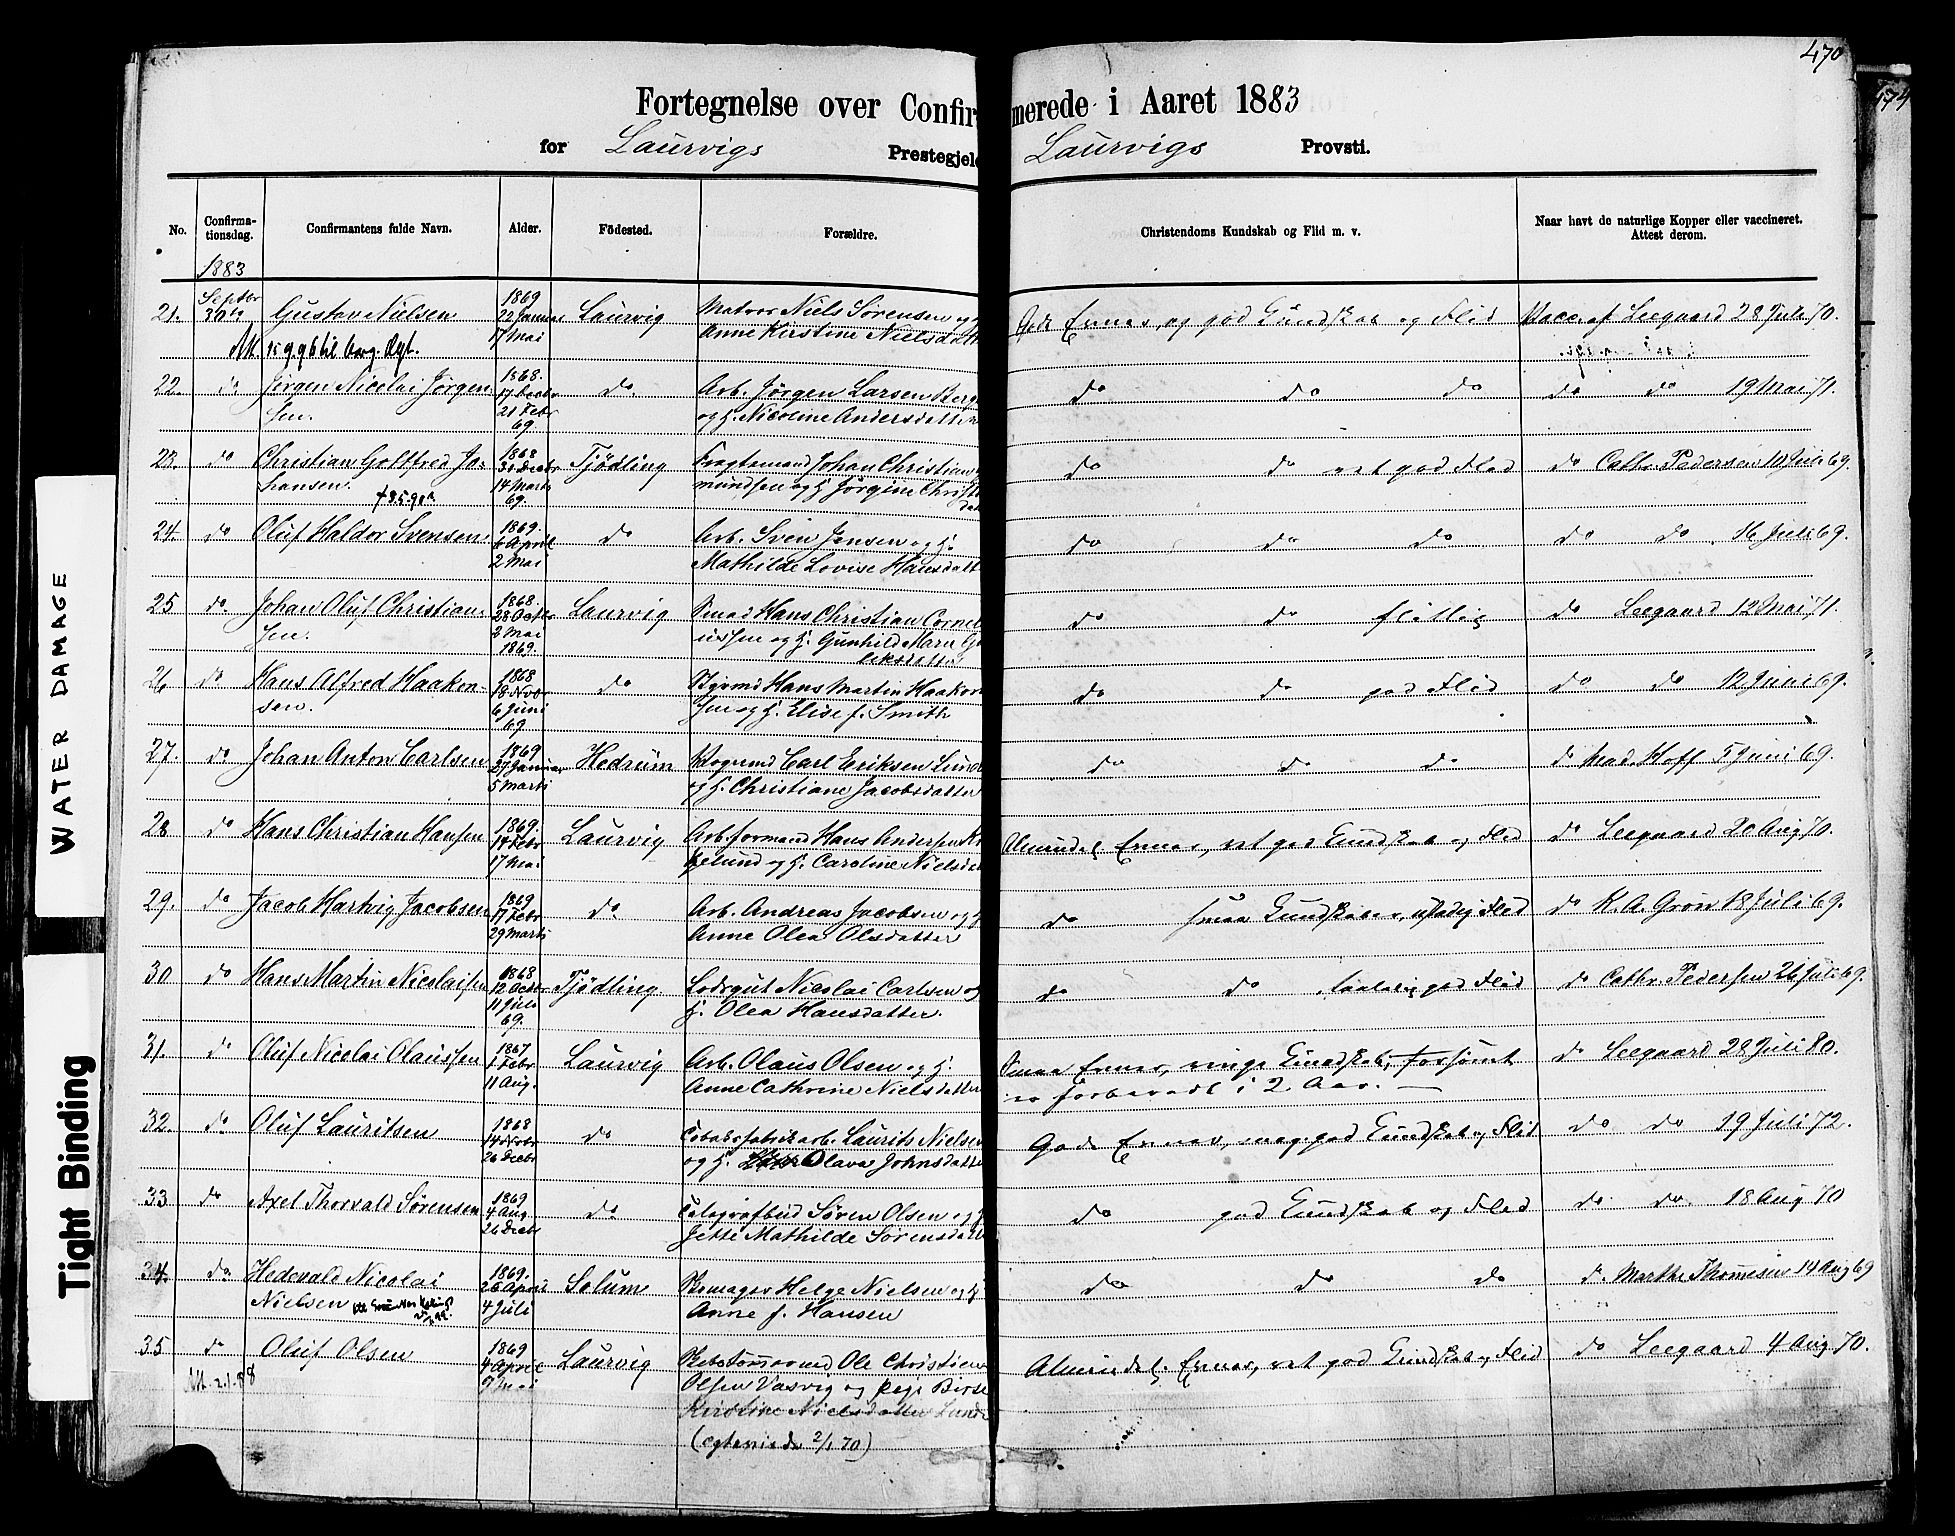 470
474
Fortegnelse over Confirmerede i Aaret 1883
for Laurvigs Prestegjeld Laurvigs Provsti.
No. Confirma-tionsdag. Confirmantens fulde Navn. Alder. Födested. Forældre. Christendoms Kundskab og Flid m. v. Naar havt de naturlige Kopper eller vaccineret. Attest derom.
1883
21. Septbr 30te Gustav Nielsen 1869 22 Januar 17 Mai Laurvig Matros Niels Sørensen og
Anne Kirstine Nielsdatt Gode Evner, og god Kundskab og Flid Vacc. af Leegaard 28 Juli 70.
Att. 15.9.96 til borg. Vgt.
22. do Jørgen Nicolai Jørgen- 1868. 17 Decbr do. Arb. Jørgen Larsen Berg do do do do do 19 Mai 71.
sen. 21 Febr 69. og H. Nicoline Andersdatter
23. do Christian Gottfred Jo- 1868 31 Decbr Tjödling Fragtemand Johan Christian do do ret god Flid do Cathr. Pedersen 10 Juli 69.
hansen. 14 Marts 69. mundsen og H. Jørgine Christi
dat
24. do Oluf Haldor Svensen 1869. 6 April do Arb. Sven Jensen og H. do do do do do 16 Juli 69.
2 Mai Mathilde Lovise Hansdatt
25 do. Johan Oluf Christian- 1868. 28 Octbr Laurvig Smed Hans Christian Cornel do do flittig do Leegaard 12 Mai 71.
sen. 2 Mai 1869. iussen og H. Gunhild Marie G
leksdatter
26 do Hans Alfred Haaken- 1868 18 Nvbr do Styrmd Hans Martin Haakon do do god Flid do do 12 Juni 69.
sen. 6 Juni 69. sen og H. Elise f. Smith
27. do Johan Anton Carlsen 1869 27 Januar Hedrum Vognmd Carl Eriksen Lund do do do do Mad. Hoff 5 Juni 69.
5 Marts og H. Christiane Jacobsdatter
28 do Hans Christian Hansen 1869. 14 Febr Laurvig Arb.formand Hans Andersen K Almindel. Evner, ret god Kundskab og Flid do Leegaard 20 Aug 70.
17 Mai kelund og H. Caroline Nielsdat
29. do Jacob Hartvig Jacobsen 1869 17 Febr do Arb. Andreas Jacobsen og H do smaa Kundskaber, ustadig Flid do K. A. Grøn 18 Juli 69.
29 Marts Anne Olea Olsdatter
30 do Hans Martin Nicolaisen 1868 12 Octbr Tjödling Lodsgut Nicolai Carlsen og do do taalelig god Flid do Cathr. Pedersen 26 Juli 69.
11 Juli 69. H. Olea Hansdatter.
31. do Oluf Nicolai Olaussen 1867 1 Febr Laurvig Arb. Olaus Olsen og H. Smaa Evner, ringe Kundskab, forsømt do Leegaard 28 Juli 80.
11 Aug. Anne Cathrine Nielsdatter er forberedt i 2 Aar.
32. do Oluf Lauritsen 1868 14 Novbr do Tobaksfabrikarb. Laurits Nielsen Gode Evner, meg. god Kundskab og Flid do do 19 Juli 72.
26 Decbr og H. Olava Johnsdatte
33 do Axel Thorvald Sørensen 1869 4 Aug do Telegrafbud Søren Olsen og H do god Kundskab og Flid do do. 18 Aug 70
26 Decbr Jette Mathilde Sørensdatt
34. do Hedevald Nicolai 1869. 26 April Solum Skomager Helge Nielsen og H do do do do. Marthe Thomesen 14 Aug 69
Nielsen 4 Juli Anne f. Hansen
35 do Oluf Olsen 1869 4 April Laurvig Skibstømmermd Ole Christian Almindel. Evner, ret god Kundskab og Flid do Leegaard 4 Aug 70.
Att. 2.1.88 9 Mai Olsen Vasvig og Pige Birte
Kirstine Nielsdatter Lund
(Egteviede 2/1 70)
WATER DAMAGE
Tight Binding